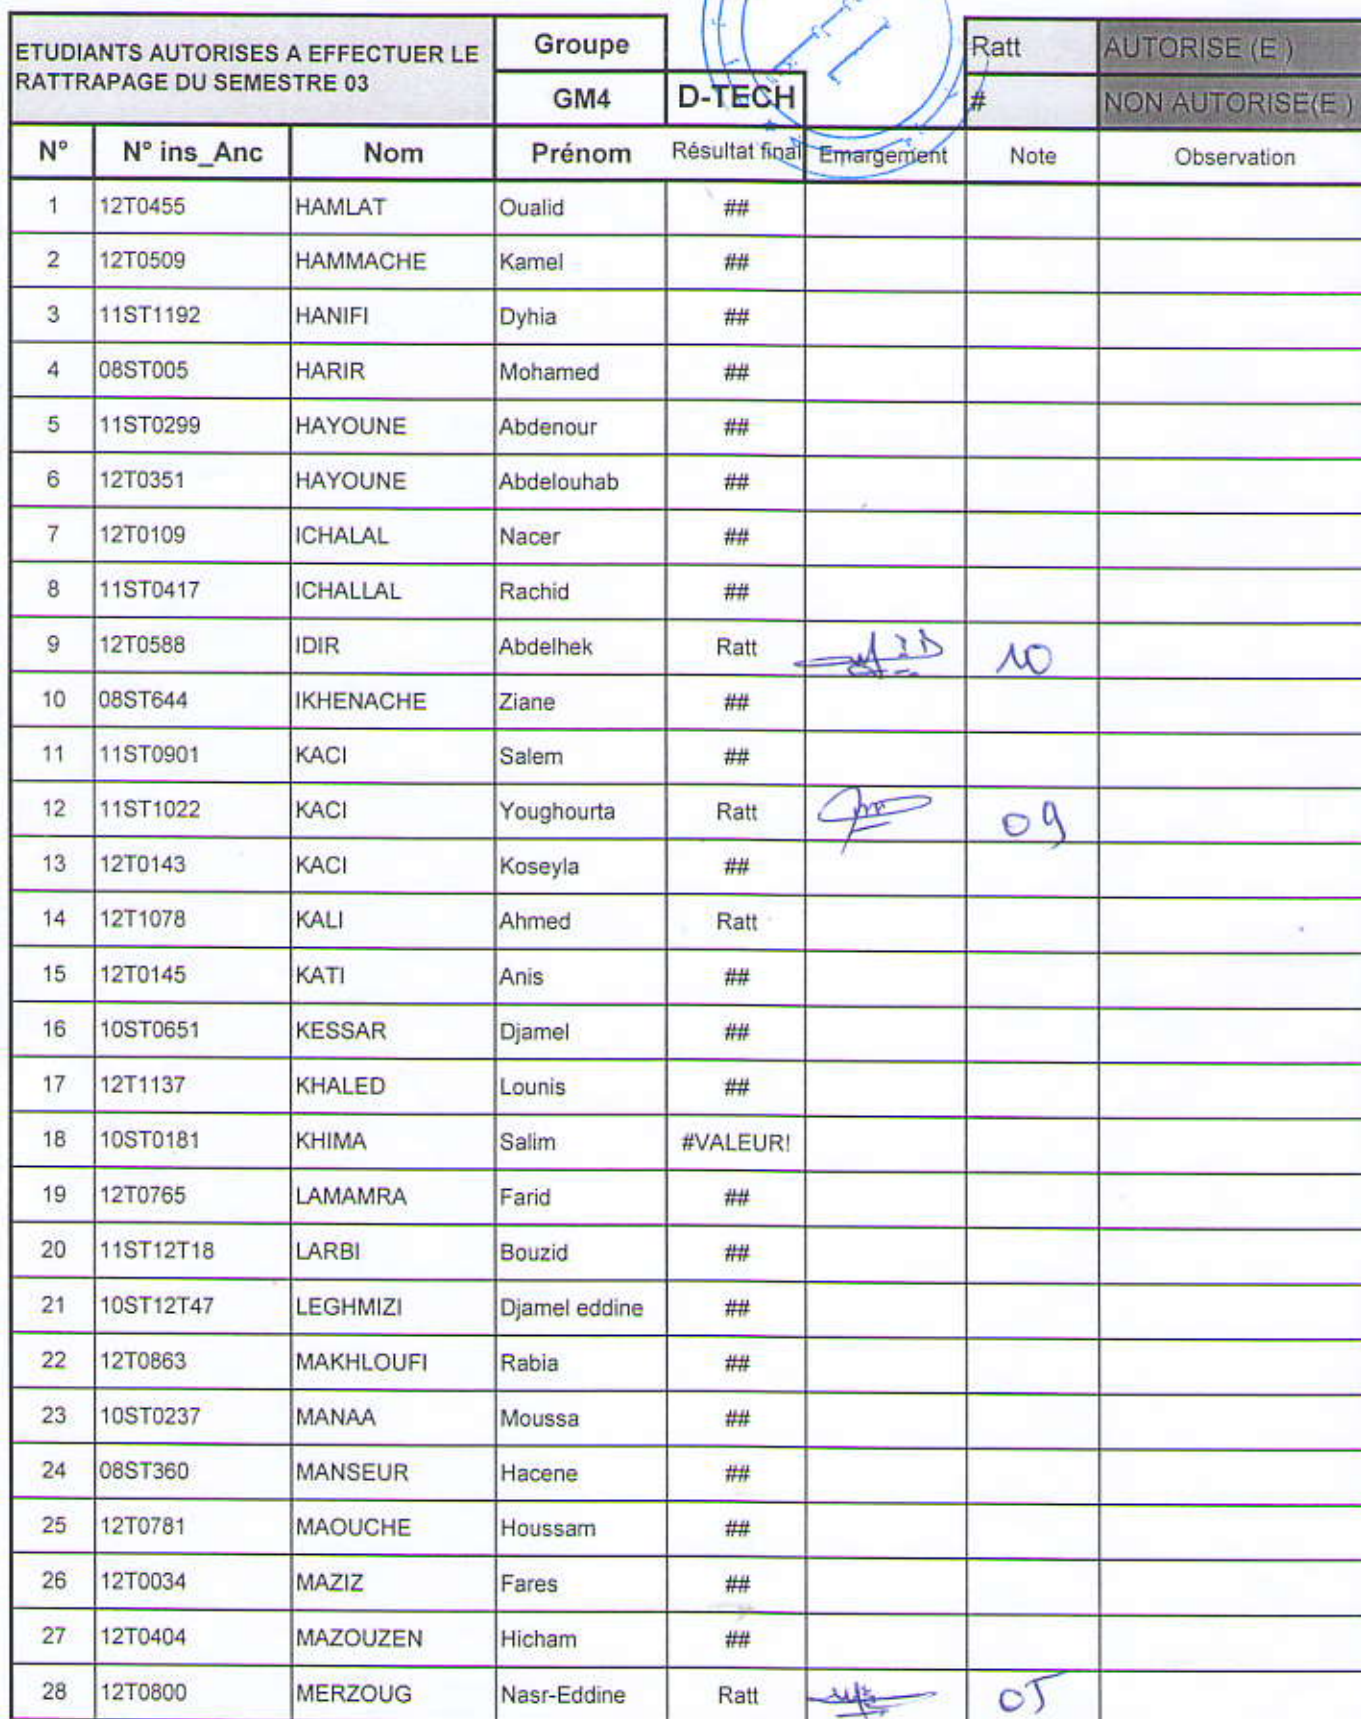 ETUDIANTS AUTORISES A EFFECTUER LE RATTRAPAGE DU SEMESTRE 03 Groupe GM4 D-TECH
Ratt AUTORISE (E )
# NON AUTORISE(E )
N° N° ins_Anc Nom Prénom Résultat final Emargement Note Observation
1 12T0455 HAMLAT Oualid ##
2 12T0509 HAMMACHE Kamel ##
3 11ST1192 HANIFI Dyhia ##
4 08ST005 HARIR Mohamed ##
5 11ST0299 HAYOUNE Abdenour ##
6 12T0351 HAYOUNE Abdelouhab ##
7 12T0109 ICHALAL Nacer ##
8 11ST0417 ICHALLAL Rachid ##
9 12T0588 IDIR Abdelhek Ratt 10
10 08ST644 IKHENACHE Ziane ##
11 11ST0901 KACI Salem ##
12 11ST1022 KACI Youghourta Ratt 09
13 12T0143 KACI Koseyla ##
14 12T1078 KALI Ahmed Ratt
15 12T0145 KATI Anis ##
16 10ST0651 KESSAR Djamel ##
17 12T1137 KHALED Lounis ##
18 10ST0181 KHIMA Salim #VALEUR!
19 12T0765 LAMAMRA Farid ##
20 11ST12T18 LARBI Bouzid ##
21 10ST12T47 LEGHMIZI Djamel eddine ##
22 12T0863 MAKHLOUFI Rabia ##
23 10ST0237 MANAA Moussa ##
24 08ST360 MANSEUR Hacene ##
25 12T0781 MAOUCHE Houssam ##
26 12T0034 MAZIZ Fares ##
27 12T0404 MAZOUZEN Hicham ##
28 12T0800 MERZOUG Nasr-Eddine Ratt 05